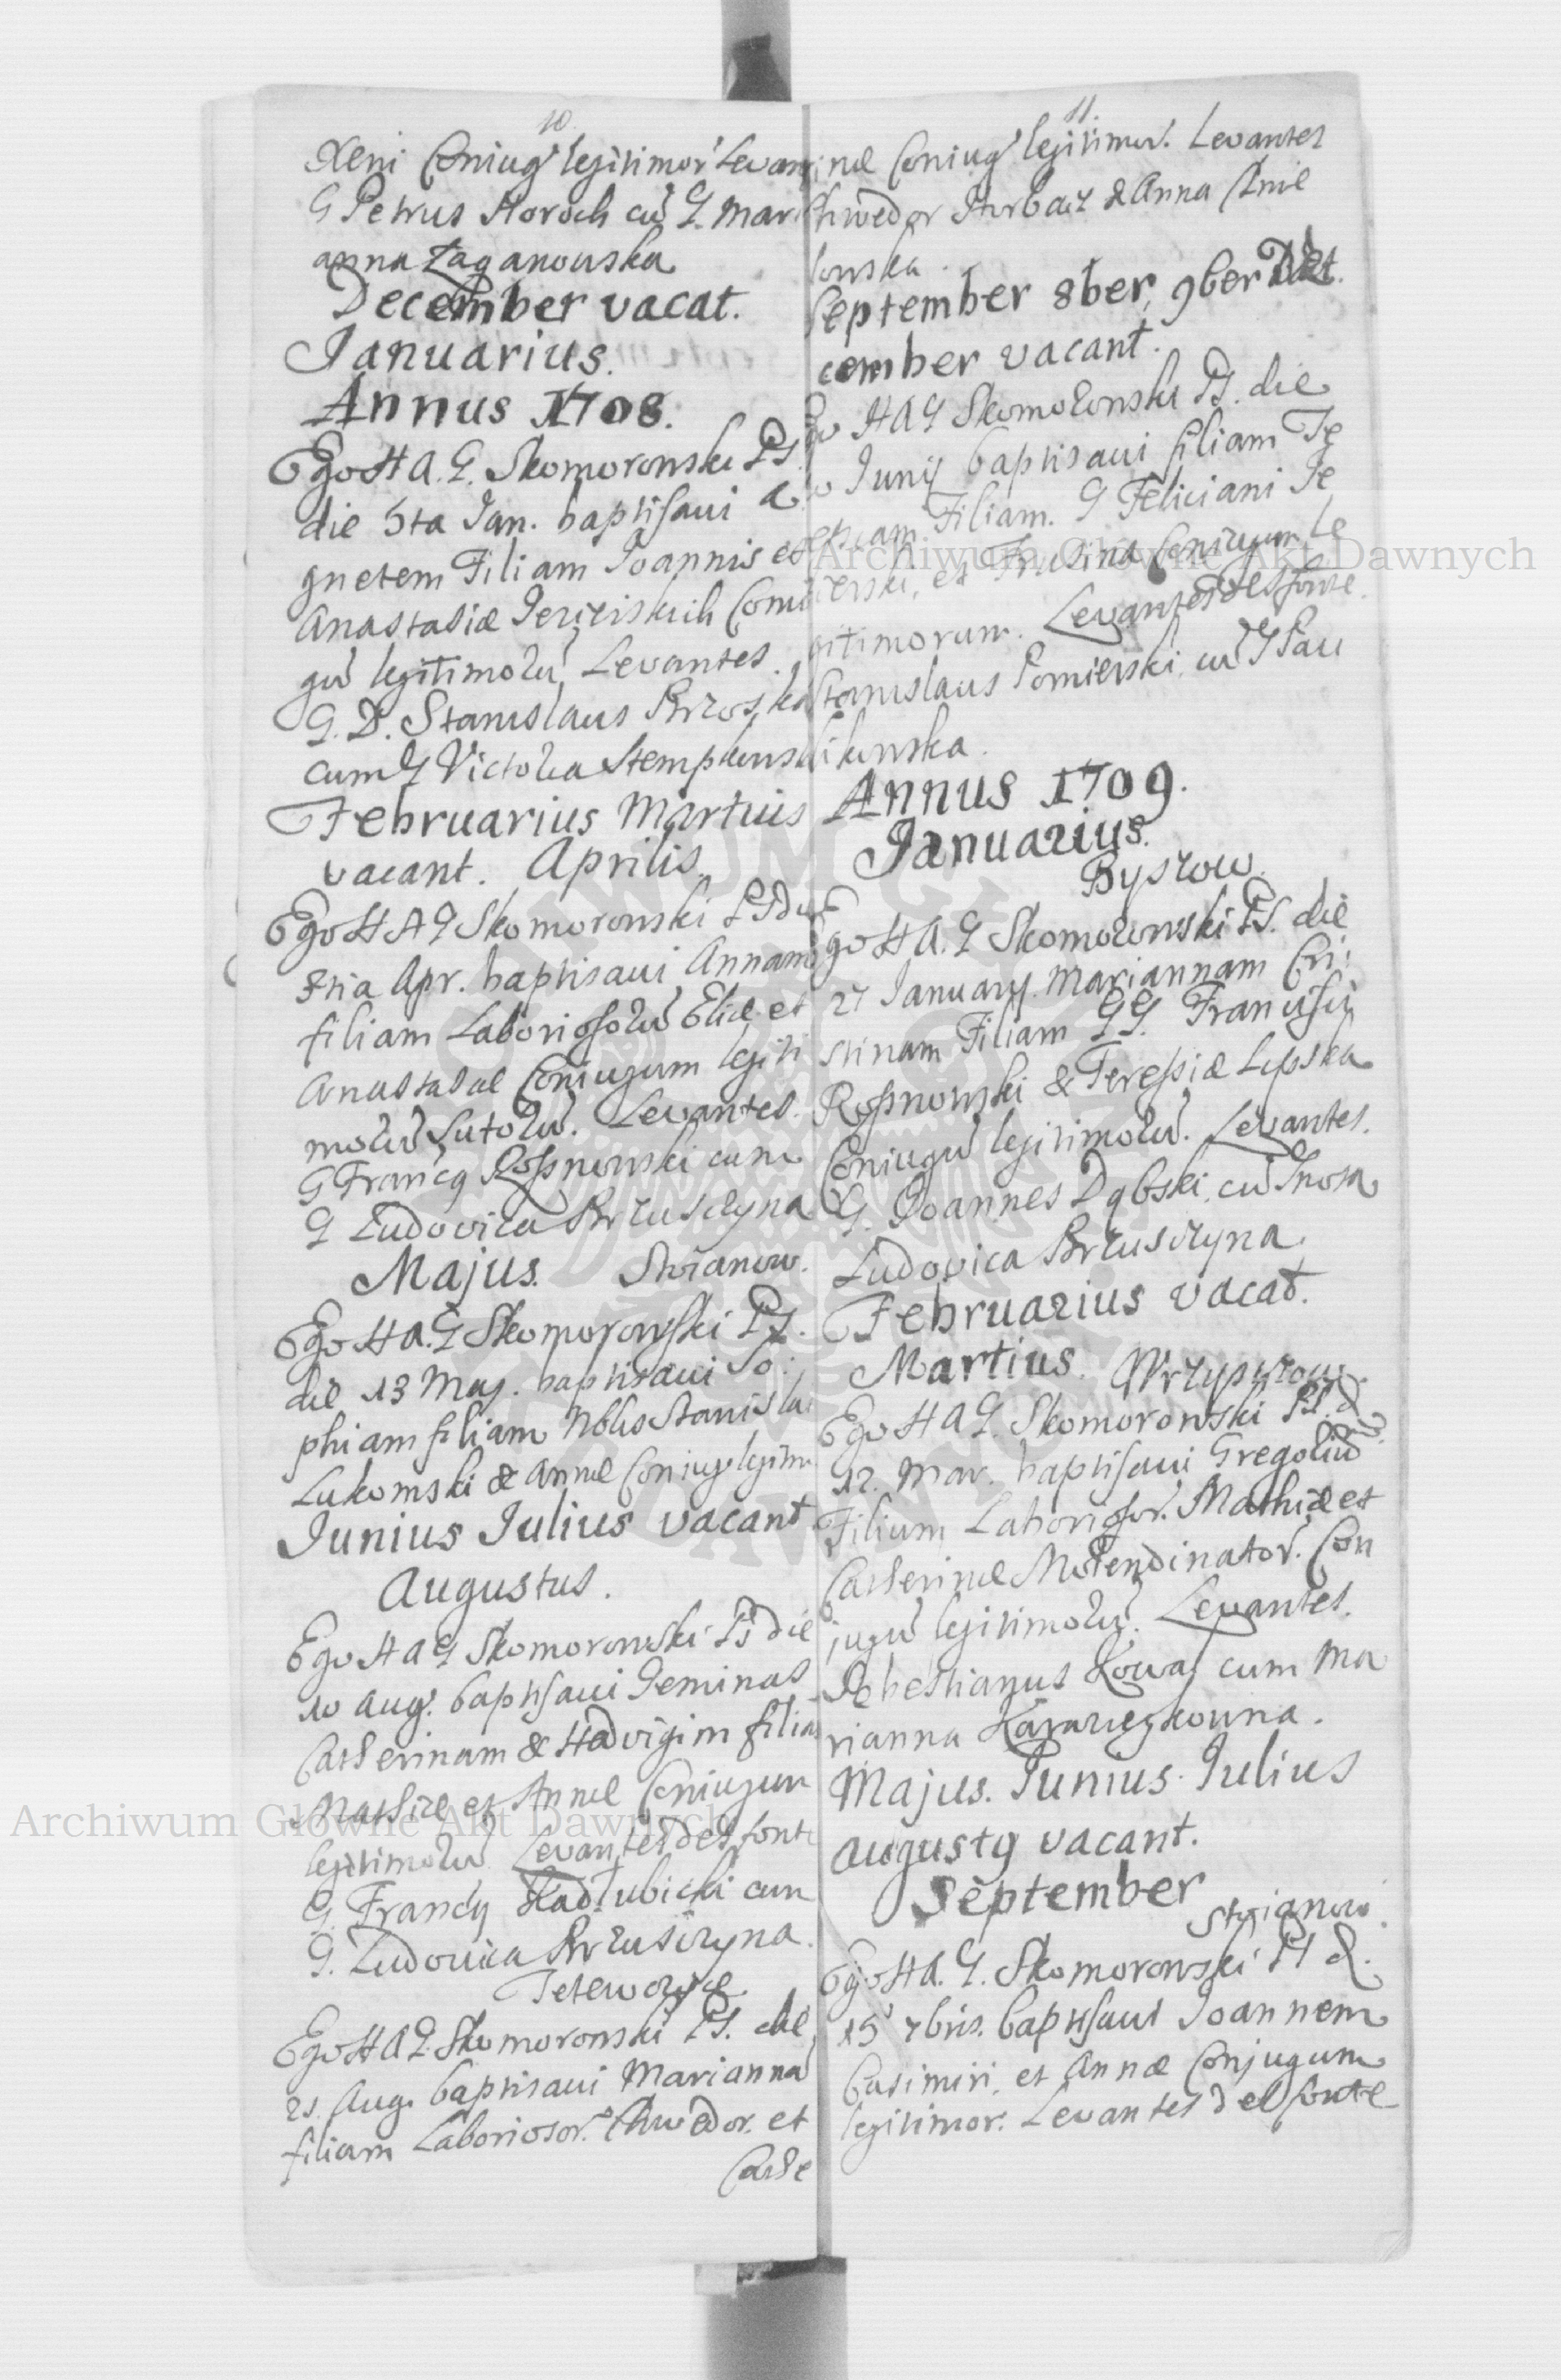 10.
Xeni Coniug legitimor Levan
G Petrus Horoch cū G. Mari
anna Zaganowska
December vacat.
Januarius.
Annus 1708.
Ego H A. G. Skomorowski PS.
die 5ta Jan. baptisavi A
gnetem Filiam Joannis et
Anastasiæ Coniu
gū legitimorū Levantes.
G. D. Stanislaus Brzoska
cum G Victoria Stempkowsk
Februarius Martius
vacant. Aprilis.
Ego H A G Skomorowski PS die
8tia Apr. baptisavi Annam
filiam Laboriosorū Eliæ et
Anastasiæ Coniugum legiti
morū Sutorū. Levantes.
G Franciq Rossnowski cum
G Ludovica Brzusczyna
Majus. Stoianow.
Ego H A. G Skomorowski PS.
die 13 Maj. baptisavi So:
phiam filiam Nobilis Stanislai
Lukomski & Annæ Coniug legitim
Junius Julius vacant
Augustus.
Ego H A G Skomorowski PS die
10 Aug. baptisavi Geminas
Catherinam & Hedvigim filias
Mathiæ et Annæ Coniugum
legitimorū Levantes de S fonte
G. Francq Kadlubicki cum
G. Ludovica Brzusczyna.
Tetewczyce
Ego H A G Skomorowski PS. die
21 Aug. baptisavi Marianna
filiam Laboriosor. Chwedor. et
Cathe
11.
rinæ Coniug legitimor. Levantes
Chwedor Horbacz & Anna Chmie
lowska.
September 8ber, 9ber Det
cember vacant.
Ego H A G Skomorowski PS. die
Junij baptisavi filiam Te
ressiam Filiam. G Feliciani Je
zierski, et Coniugum Le
gitimorum. Levantes de S fonte.
Stanislaus Pomierski cū G Pau
likowska.
Annus 1709.
Januarius.
Byszow.
Ego H A. G Skomorowski PS. die
27 January. Mariannam Cri:
stinam Filiam GG. Francisci
Rossnowski & Teressiæ Lipska
Coniugū legitimorū. Levantes.
G. Joannes Dąbski cū Gnosa
Ludovica Brzusczyna.
Februarius vacat.
Martius.
Ego H A G. Skomorowski PS. die
12. Mar. baptisavi Gregoriū
Filium Laboriosor. Mathiæ et
Catherinæ Molendinator. Con
jugū legitimorū. Levantes.
Sebestianus Kowal cum Ma
rianna
Majus. Junius. Julius
Augustq vacant.
September
Stoianow.
Ego H A. G. Skomorowski PS d.
15 7bris. baptisavi Joannem
Casimiri, et Annæ Conjugum
legitimor. Levantes de S fonte
Archiwum Główne Akt Dawnych
Archiwum Główne Akt Dawnych